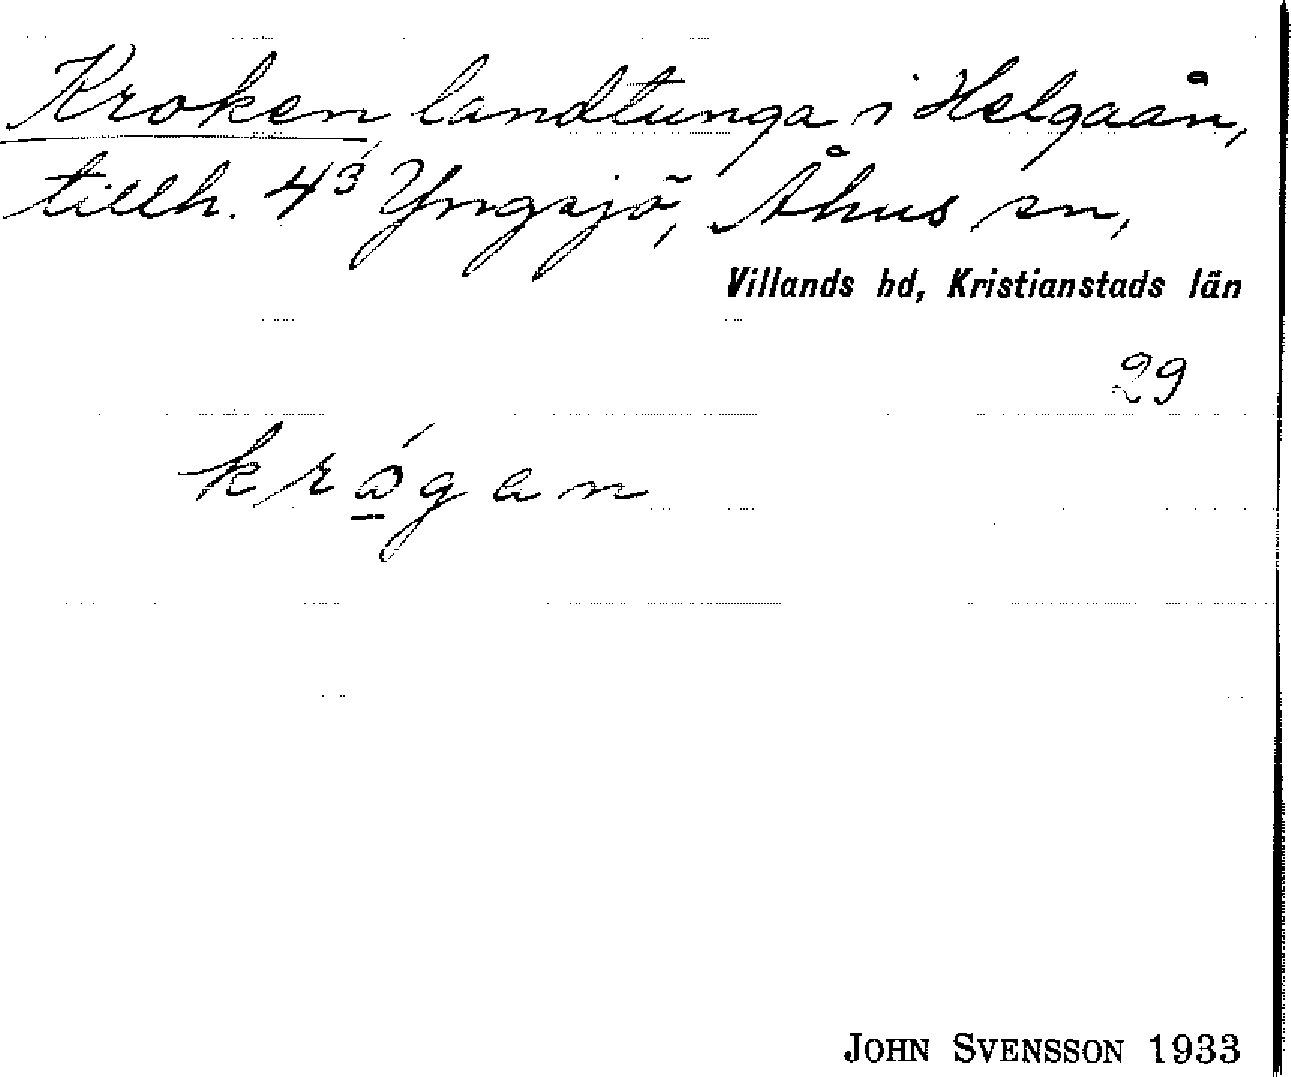 Kroken, landtunga i Helgaån,
tillh. 4³ Yngsjö, Åhus sn,
Villands hd, Kristianstads län
29
JOHN SVENSSON 1933